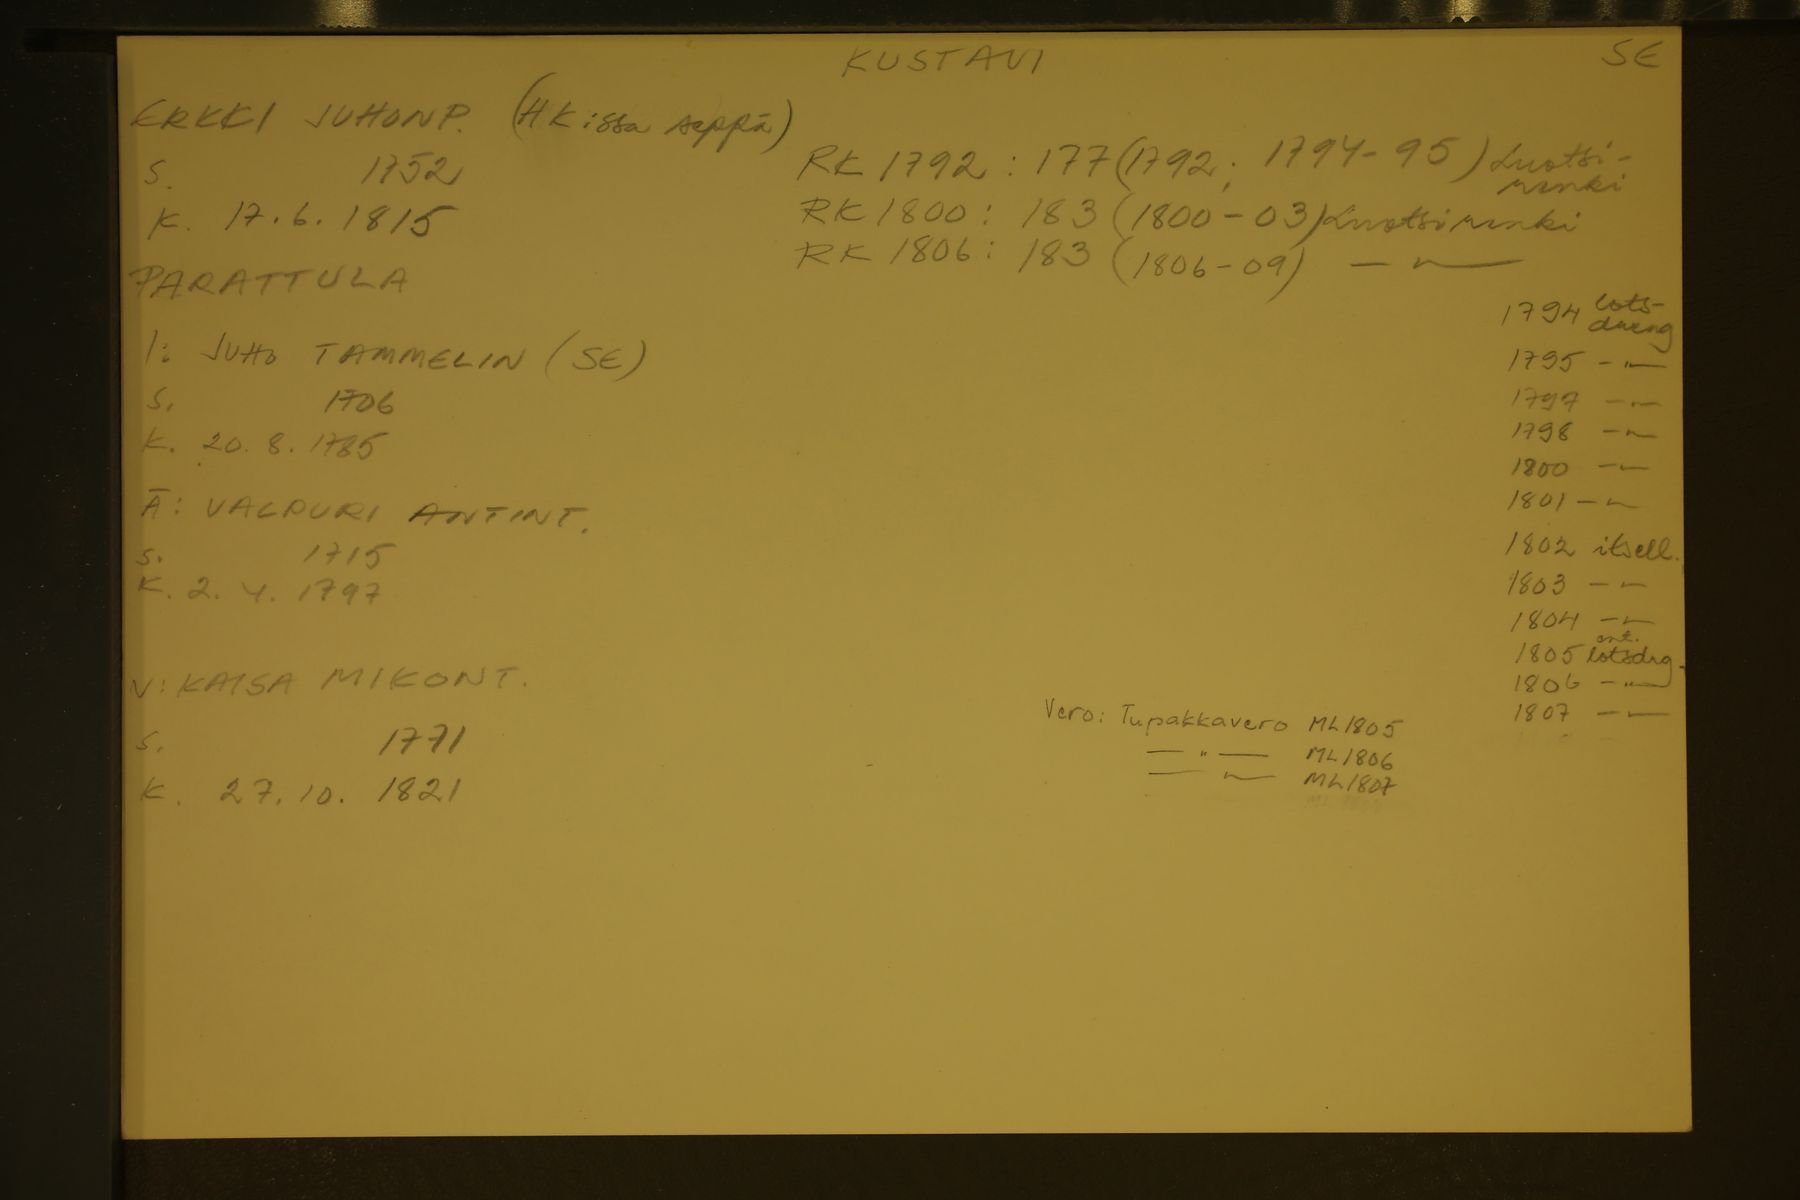 KUSTAVI
SE
ERKKI JUHONP. (HK issa seppä)
s. 1752
K. 17.6. 1815
PARATTULA
I: JUHO TAMMELIN (SE)
s. 1706
K. 20. 8. 1785
Ä: VALPURI ANTINT.
s. 1715
K. 2. 4. 1797
V: KAISA MIKONT.
s. 1771
K. 27. 10. 1821
RK 1792 : 177 (1792; 1794-95) Luotsi-
renki
RK 1800 : 183 (1800-03) Luotsirenki
RK 1806 : 183 (1806-09) — " —
1794 lots-
dreng
1795 — " —
1797 — " —
1798 — " —
1800 — " —
1801 — " —
1802 itsell.
1803 — " —
1804 — " —
1805 lotsdrg.
1806 — " —
1807 — " —
Vero: Tupakkavero ML 1805
— " — ML 1806
— " — ML 1807